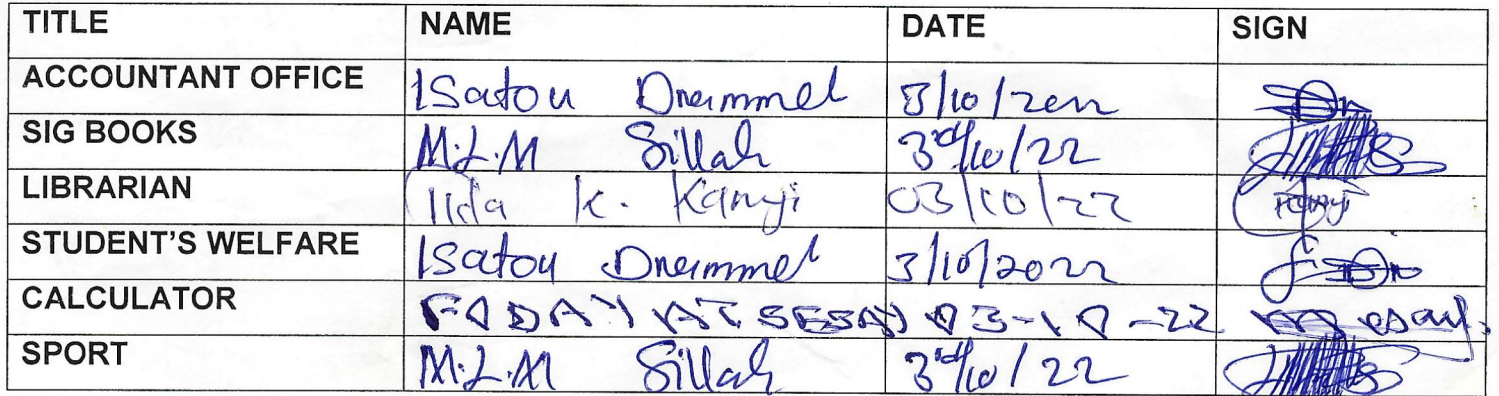 TITLE NAME DATE SIGN
ACCOUNTANT OFFICE Isatou 3/10/
SIG BOOKS M.L.M Sillah 3rd/10/22
LIBRARIAN K. Kanyi 03/10/22 Kanyi
STUDENT'S WELFARE Isatou 3/10/2022
CALCULATOR FODAY SESAY 03-10-22
SPORT M.L.M Sillah 3rd/10/22